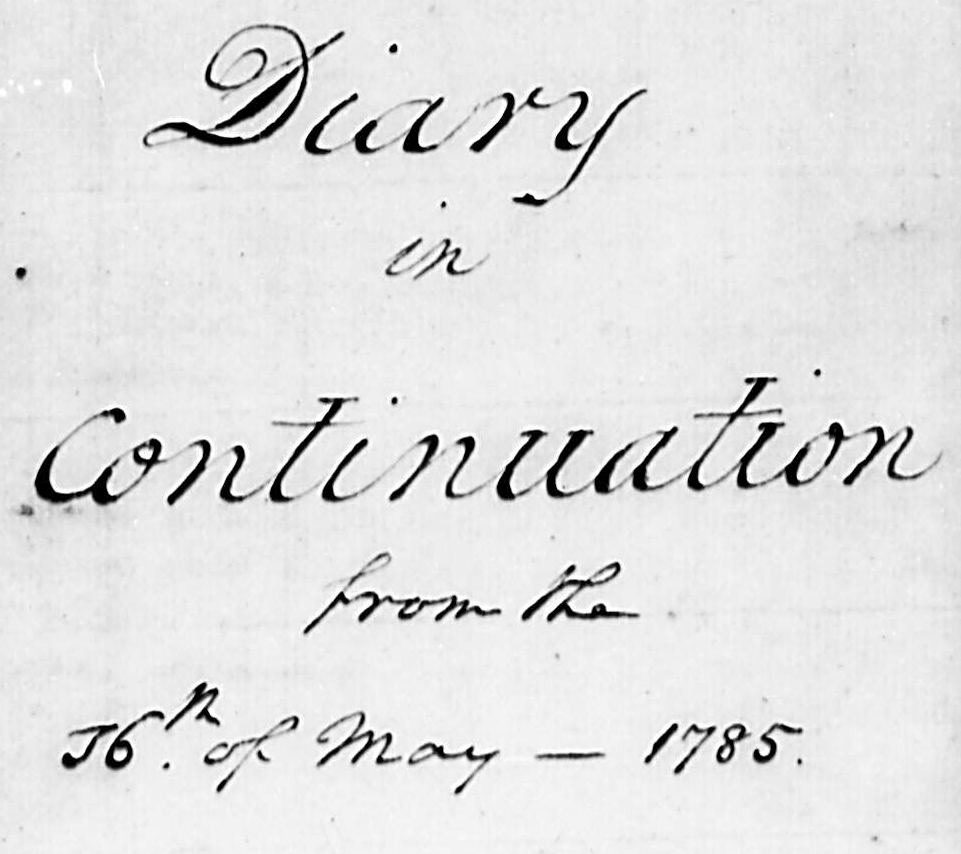 Diary
in
Continuation
from the
16th. of May — 1785.